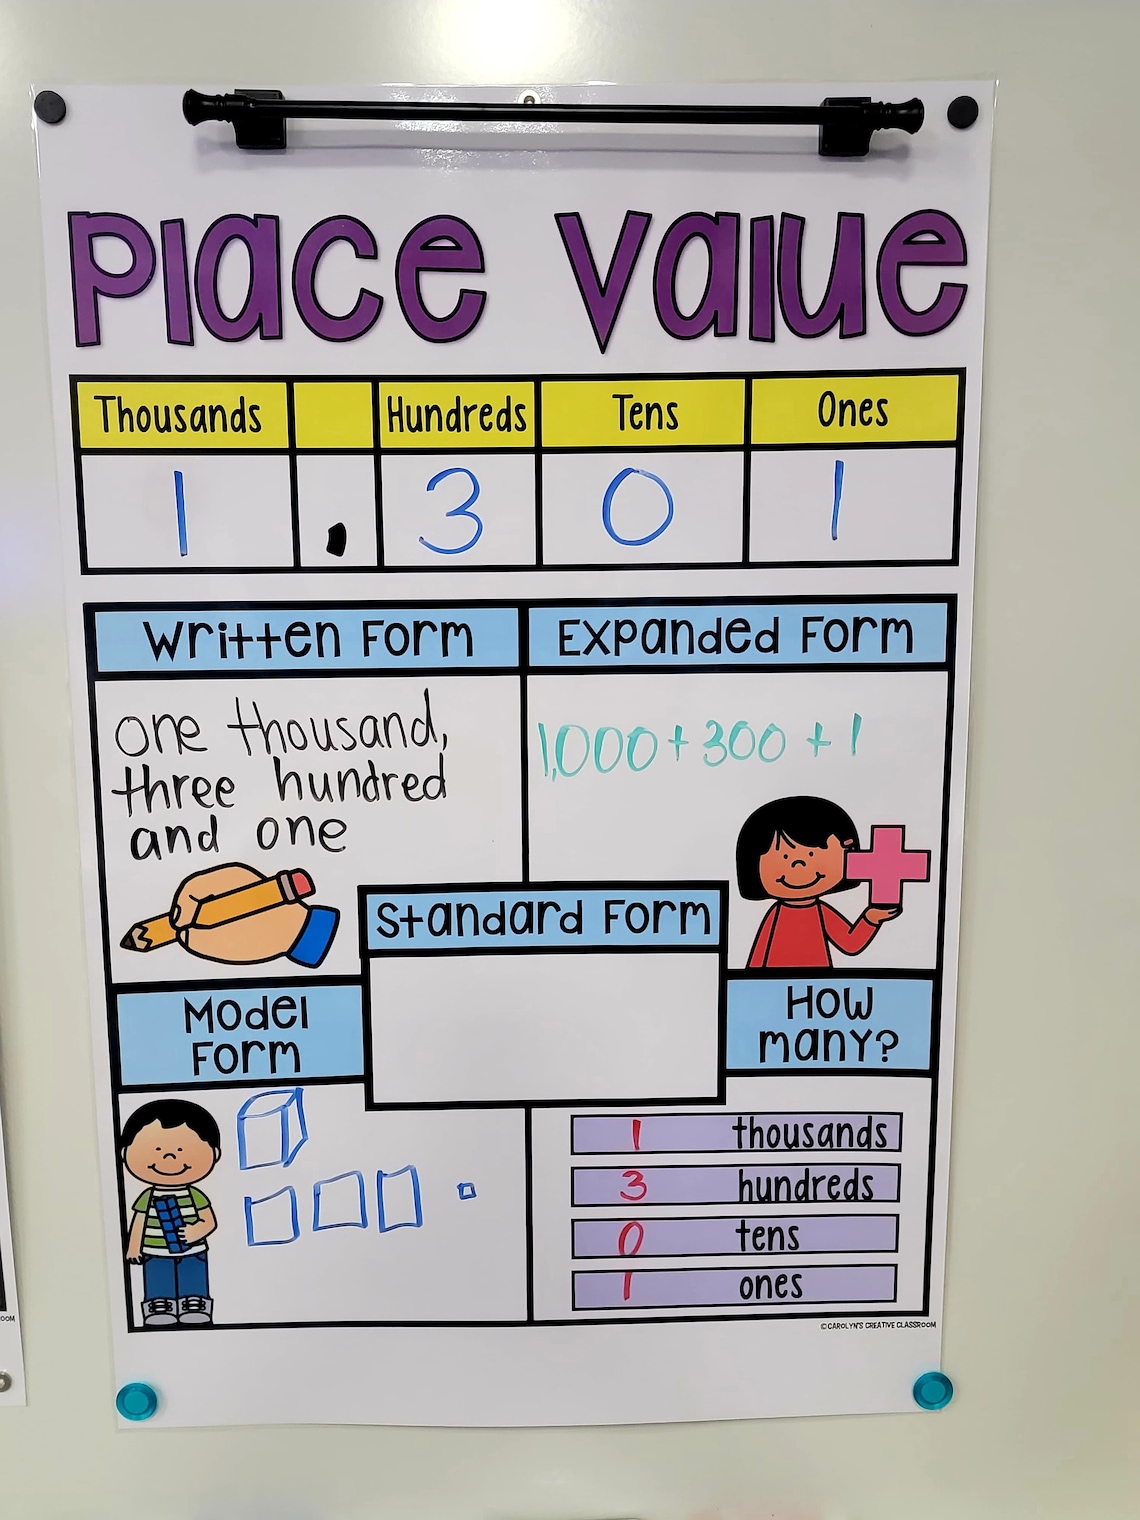 Place Value
Thousands Hundreds Tens Ones
1 . 3 0 1
Written Form
one thousand,
three hundred
and one
Expanded Form
1,000 + 300 + 1
Standard Form
Model
Form
How
many?
1 thousands
3 hundreds
0 tens
1 ones
©CAROLYN'S CREATIVE CLASSROOM